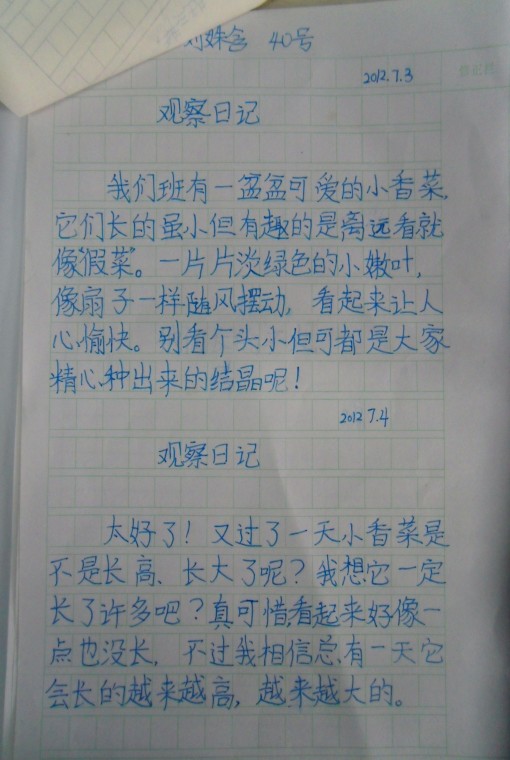 刘姝含 40号
2012.7.3
观察日记
我们班有一盆盆可爱的小香菜,
它们长的虽小但有趣的是离远看就
像“假菜”。一片片淡绿色的小嫩叶,
像扇子一样随风摆动,看起来让人
心愉快。别看个头小但可都是大家
精心种出来的结晶呢!
2012 7.4
观察日记
太好了!又过了一天小香菜是
不是长高、长大了呢?我想它一定
长了许多吧?真可惜看起来好像一
点也没长,不过我相信总有一天它
会长的越来越高,越来越大的。